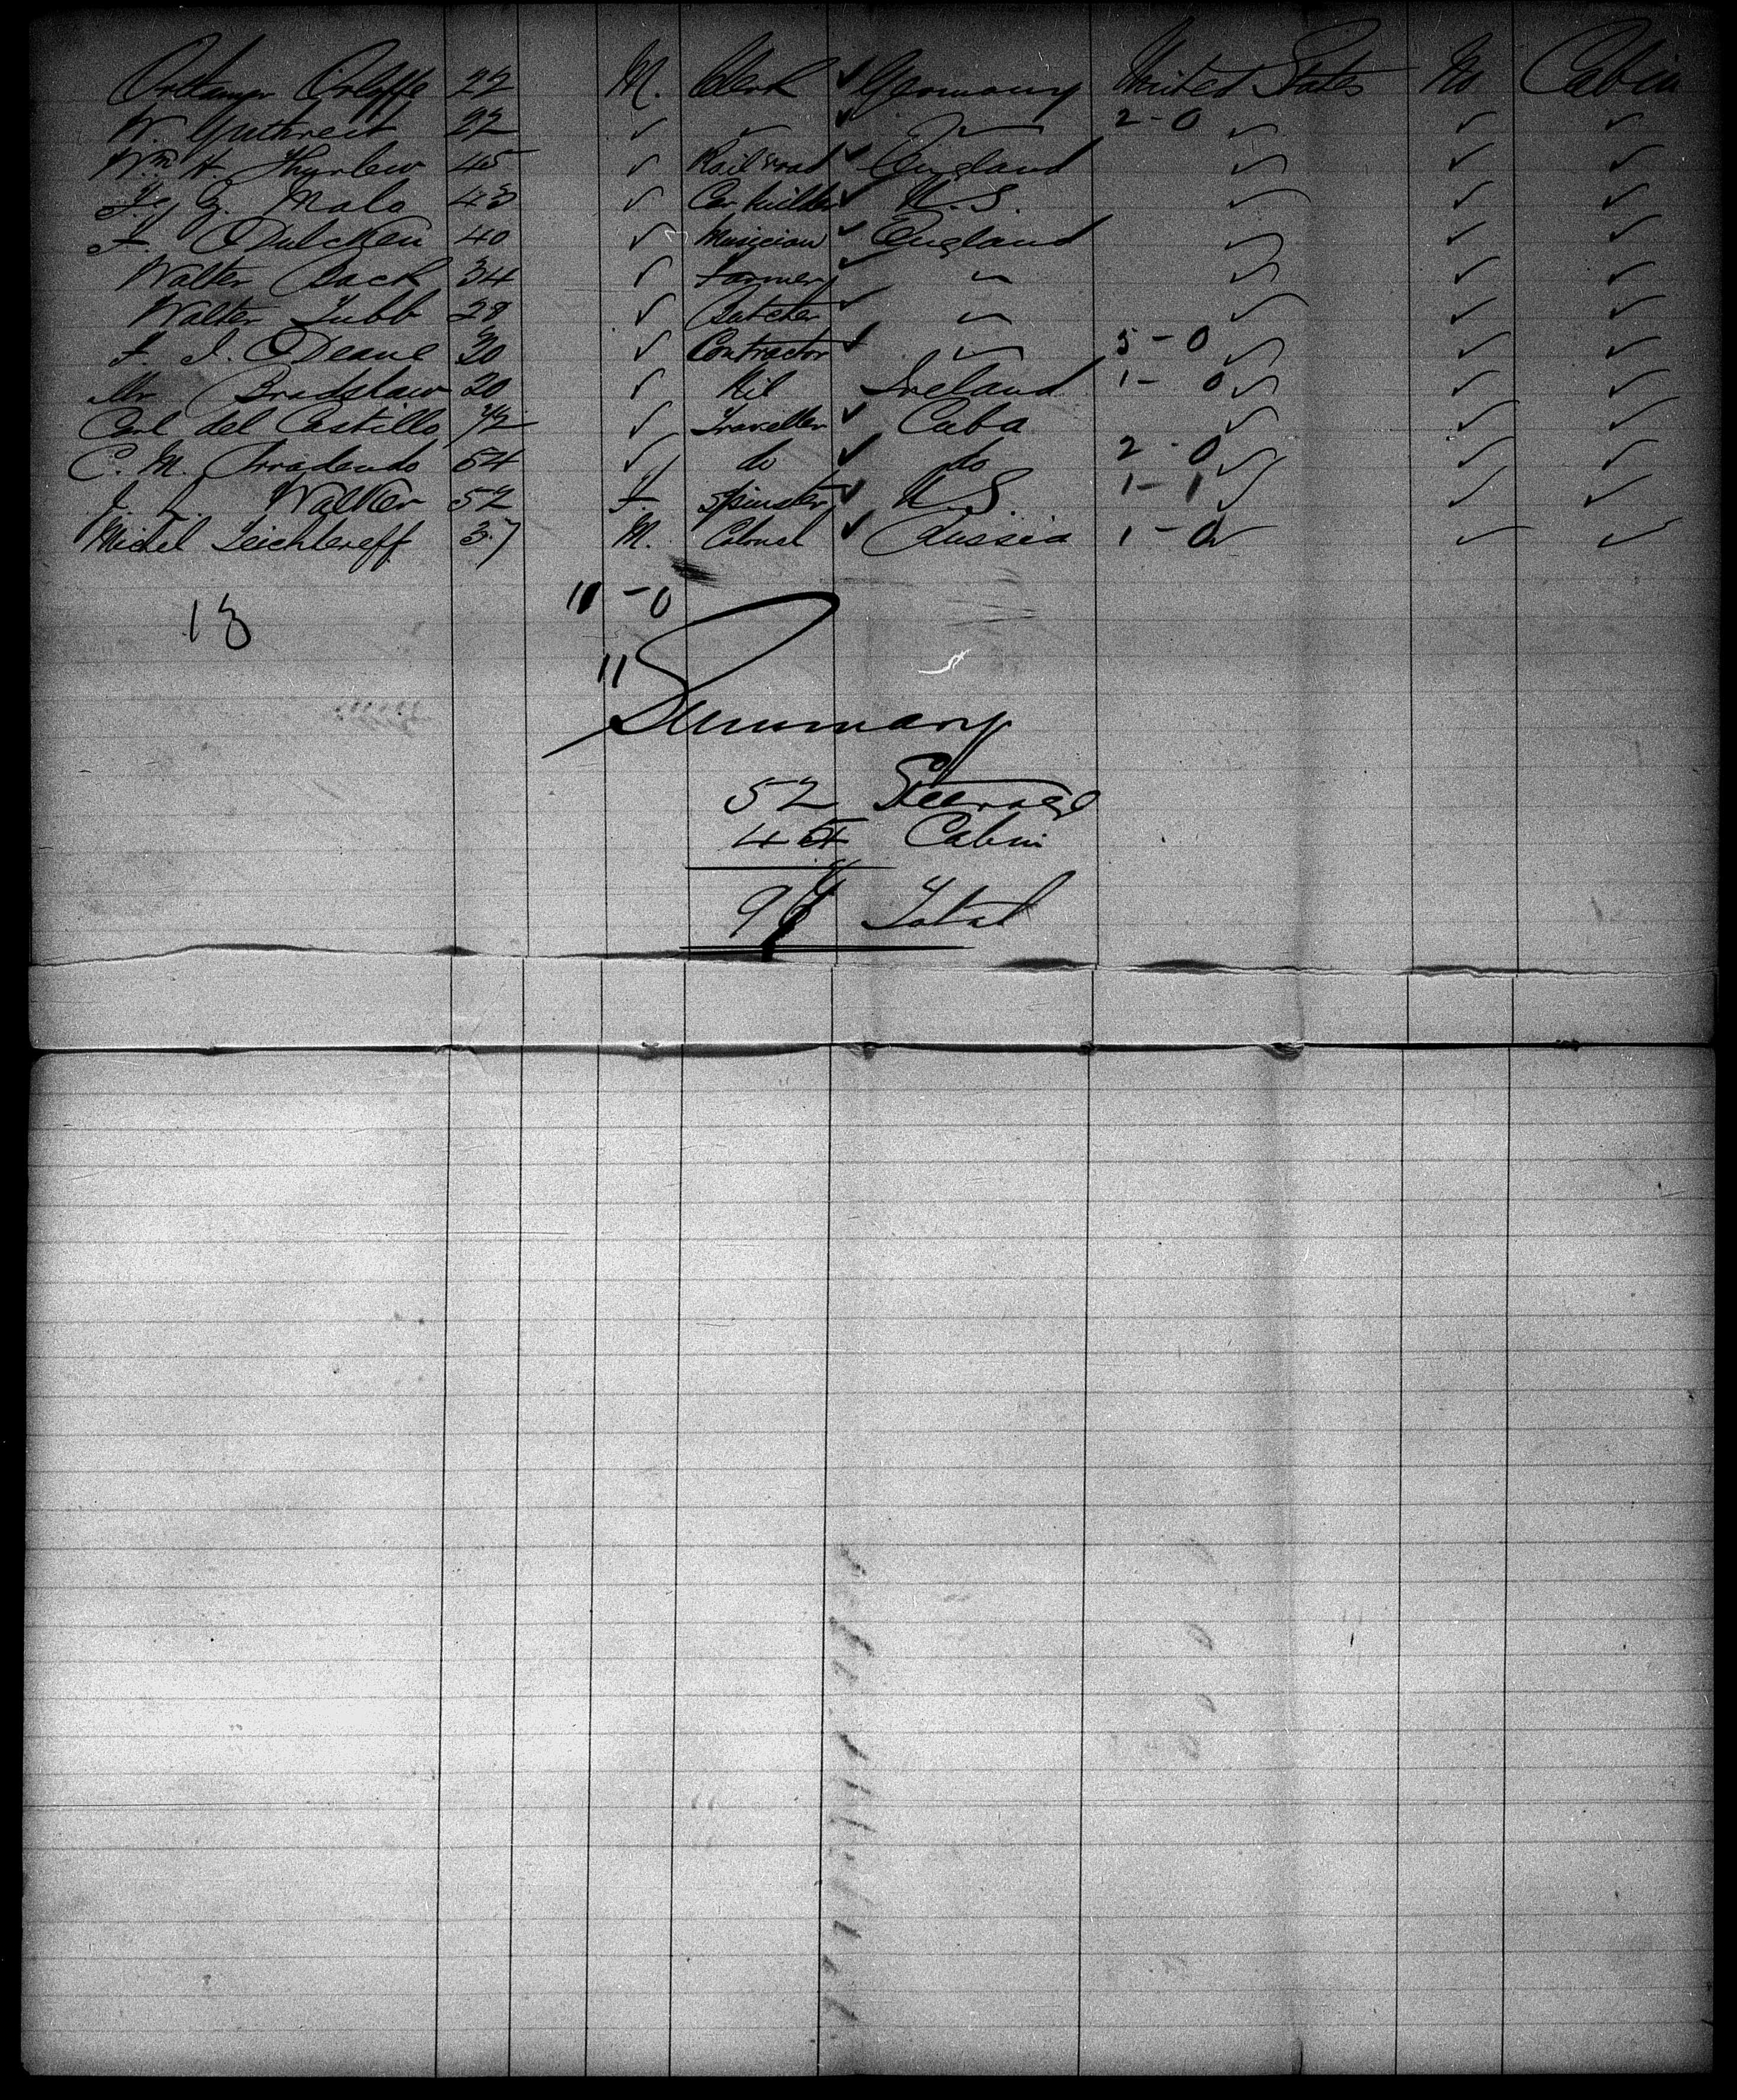 22 M. Clerk ✓ Germany United States No Cabin
W. 22 ✓ ✓ ✓ ✓ 2-0 ✓ ✓ ✓
Wm H. 45 ✓ Railroad ✓ England ✓ ✓ ✓
Malo 43 ✓ Car builder ✓ U.S. ✓ ✓ ✓
F. Dulcken 40 ✓ Musician ✓ England ✓ ✓ ✓
Walter Back 34 ✓ Farmer ✓ ✓ ✓ ✓
Walter Tubb 28 ✓ Butcher ✓ ✓ ✓ ✓
F. I. Deane 30 ✓ Contractor ✓ 5-0 ✓ ✓ ✓
Mr Bradshaw 20 ✓ Nil Ireland 1-0 ✓ ✓ ✓
Carl del Castillo 42 ✓ Traveller ✓ Cuba ✓ ✓ ✓
C. M. 54 ✓ do ✓ do 2-0 ✓ ✓ ✓
J. L. Walker 52 F. Spinster ✓ U.S. 1-1 ✓ ✓ ✓
Michel 37 M. Colonel ✓ Russia 1-0 ✓ ✓ ✓
11-0
13
11
Summary
52 Steerage
45 Cabin
97 Total